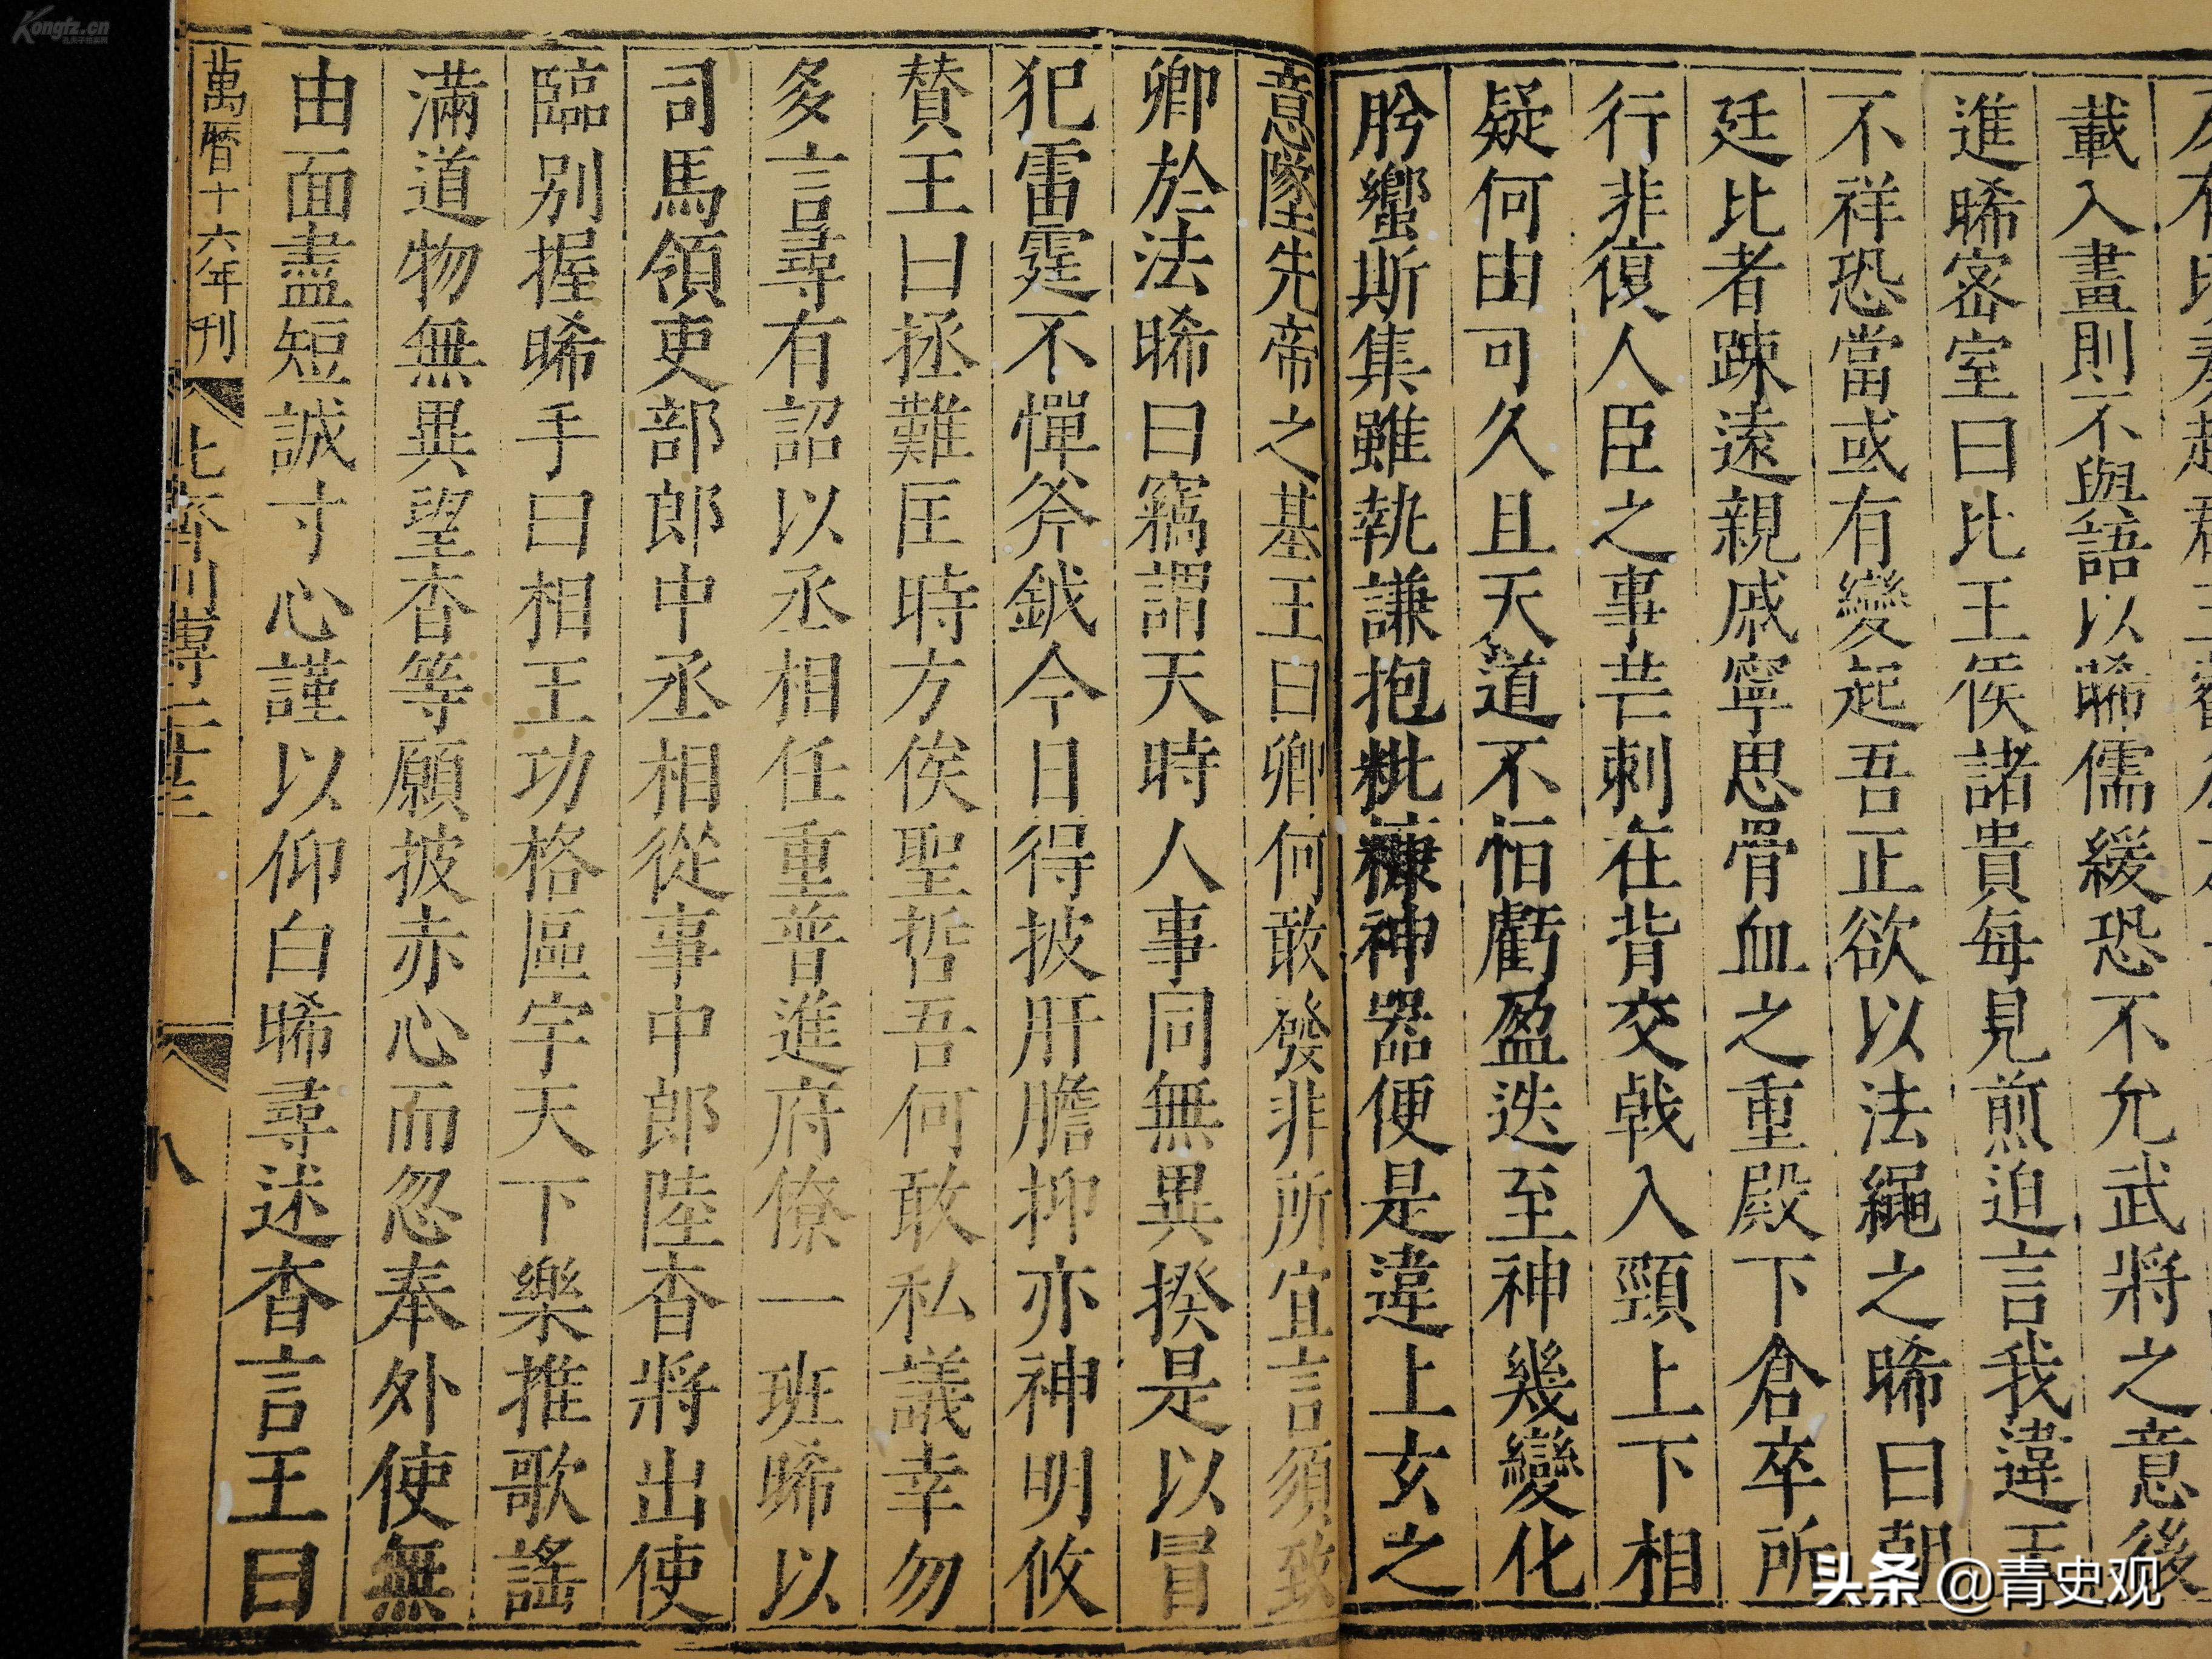 載入畫則不與語以晞儒緩恐不允武將之意後
進晞密室曰比王侯諸貴每見煎迫言我違
不祥恐當或有變起吾正欲以法繩之晞曰朝
廷比者踈遠親戚寧思骨血之重殿下倉卒所
行非復人臣之事芒刺在背交戟入頸上下相
疑何由可久且天道不恒虧盈迭至神幾變化
肸蠁斯集雖執謙抱粃糠神器便是違上玄之
意墜先帝之基王曰卿何敢發非所宜言須致
卿於法晞曰竊謂天時人事同無異揆是以冒
犯雷霆不憚斧鉞今日得披肝膽抑亦神明攸
贊王曰拯難匡時方俟聖哲吾何敢私議幸勿
多言尋有詔以丞相任重普進府僚一班晞以
司馬領吏部郎中丞相從事中郎陸杳將出使
臨別握晞手曰相王功格區宇天下樂推歌謠
滿道物無異望杳等願披赤心而忽奉外使無
由面盡短誠寸心謹以仰白晞尋述杳言王曰
萬曆十六年刊
北齊列傳二十三
八
Kongfz.cn
头条 @青史观